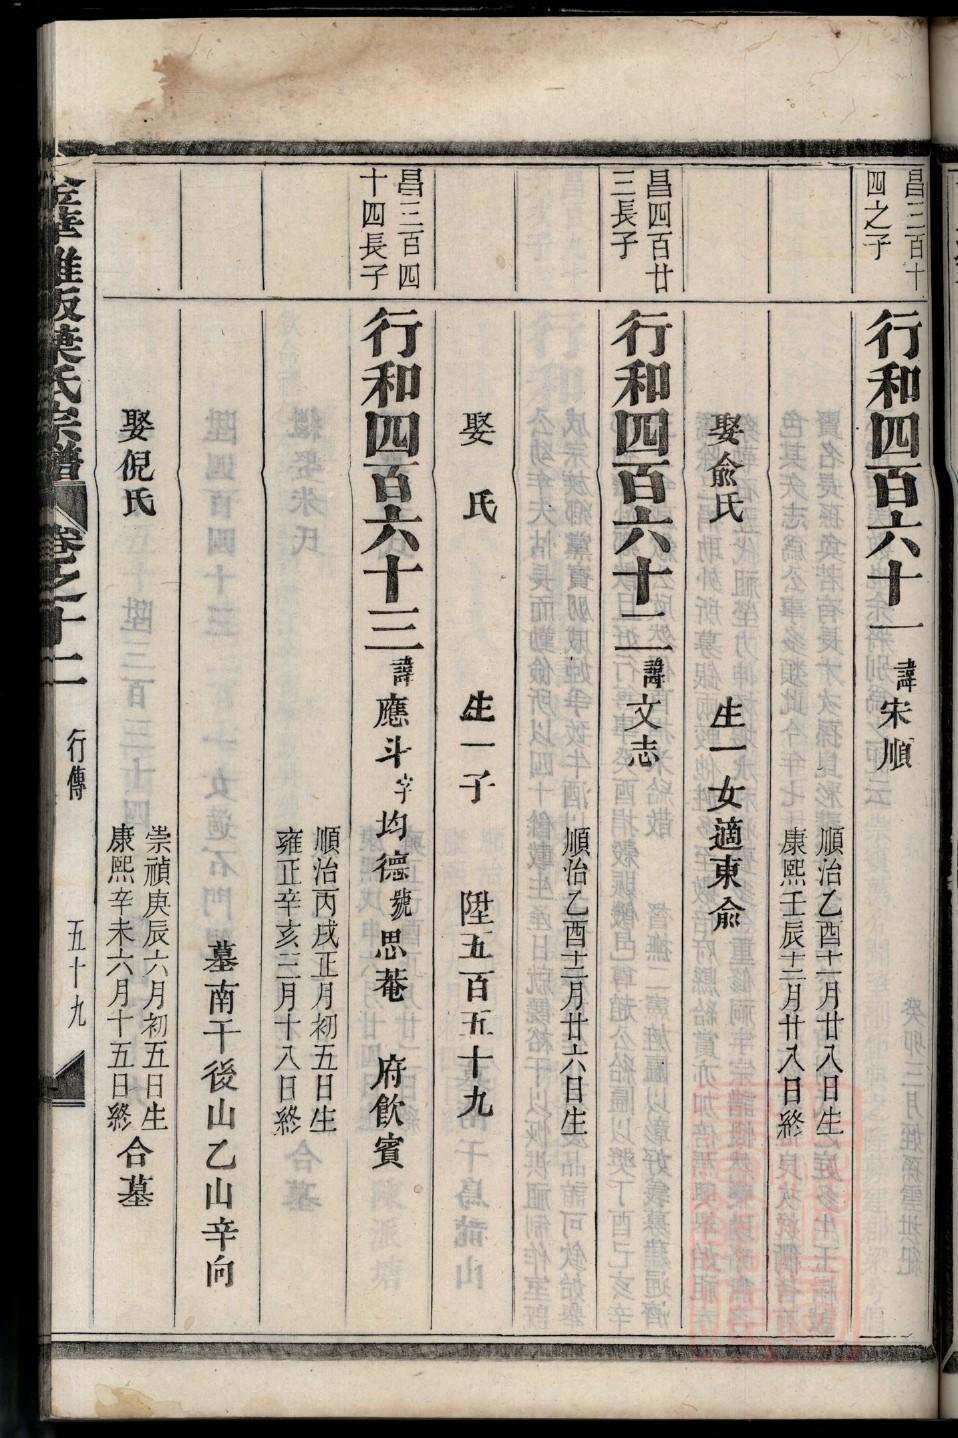 昌三百十
四之子
行和四百六十一諱宋順
順治乙酉十一月廿八日生
康熙壬辰十二月廿八日終
娶俞氏 生一女適東俞
昌四百廿
三長子
行和四百六十二諱文志
順治乙酉十二月廿六日生
娶 氏 生一子 陞五百五十九
昌三百四
十四長子
行和四百六十三諱應斗字均德號思菴 府飲賓
順治丙戌正月初五日生
雍正辛亥三月十八日終
墓南干後山乙山辛向
娶倪氏
崇禎庚辰六月初五日生
康熙辛未六月十五日終
合墓
金華雅畈葉氏宗譜 卷之十二 行傳 五十九